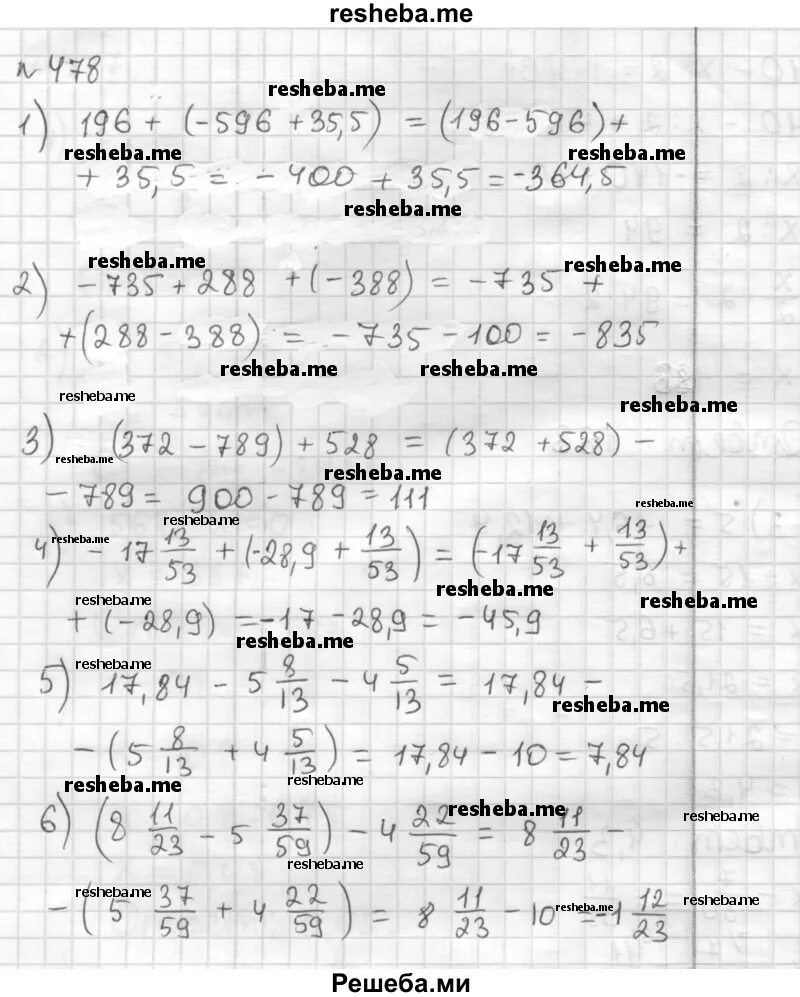 resheba.me
№ 478
resheba.me
1) 196 + (-596 + 35,5) = (196-596)+
resheba.me resheba.me
+ 35,5 = -400 + 35,5 = -364,5
resheba.me
resheba.me resheba.me
2) -735 + 288 + (-388) = -735 +
+(288 - 388) = -735 - 100 = -835
resheba.me resheba.me
resheba.me
resheba.me
3) (372 - 789) + 528 = (372 + 528) -
resheba.me
resheba.me
- 789 = 900 - 789 = 111
resheba.me
resheba.me
4) -17 13/53 + (-28,9 + 13/53) = (-17 13/53 + 13/53) +
resheba.me
resheba.me
resheba.me resheba.me
+ (-28,9) = -17 - 28,9 = -45,9
resheba.me
resheba.me
5) 17,84 - 5 8/13 - 4 5/13 = 17,84 -
resheba.me
- (5 8/13 + 4 5/13) = 17,84 - 10 = 7,84
resheba.me resheba.me
resheba.me resheba.me
6) (8 11/23 - 5 37/59) - 4 22/59 = 8 11/23 -
resheba.me
resheba.me resheba.me resheba.me
- (5 37/59 + 4 22/59) = 8 11/23 - 10 = -1 12/23
Решеба.ми